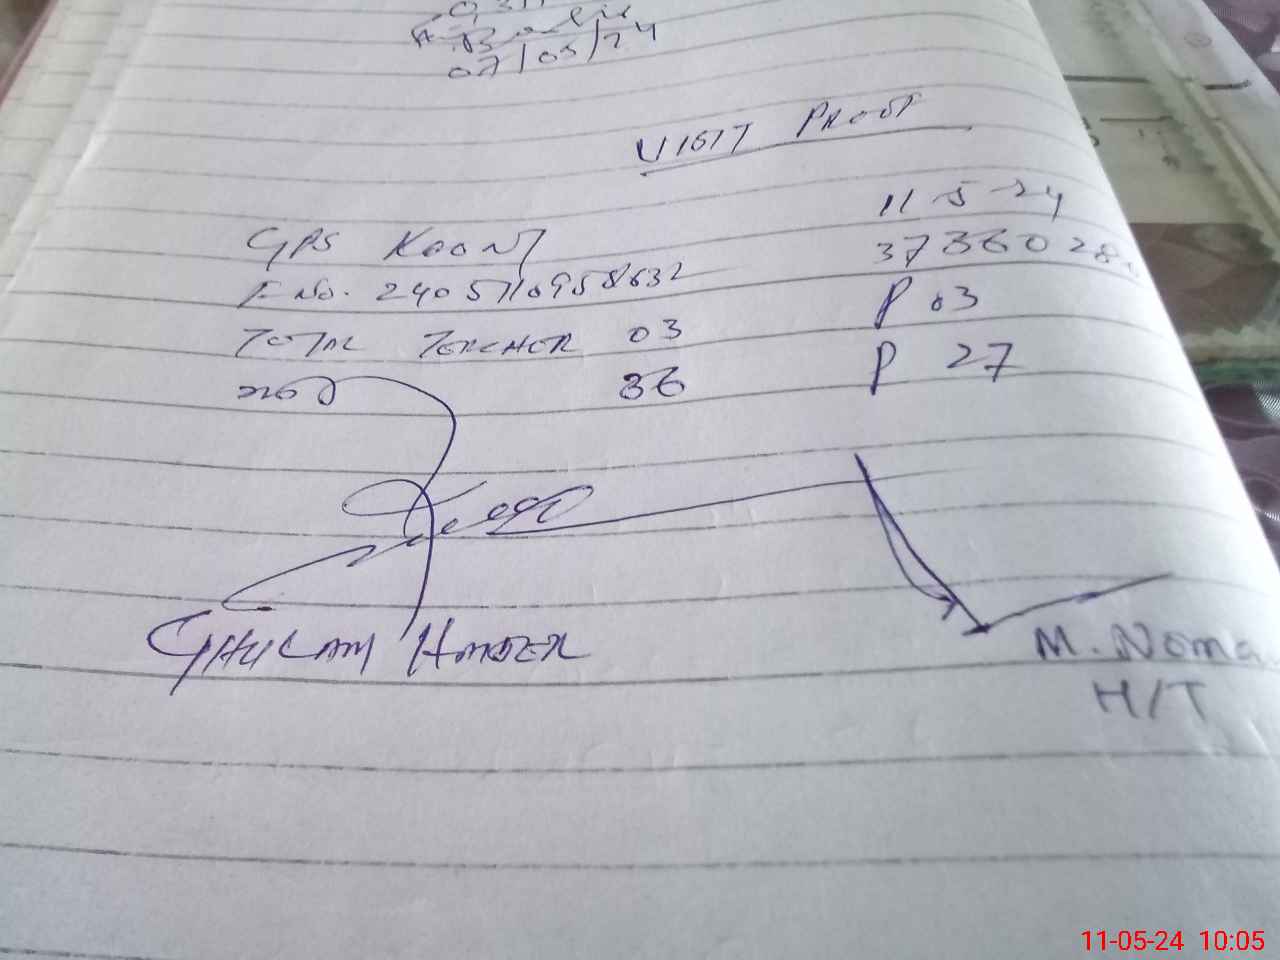 07/05/24
VISIT PROOF
11-5-24
GPS KOONJ 3736028
F No. 2405710958632
TOTAL TEACHER 03 P 03
36 P 27
GHULAM HAIDER
M. Noma
H/T
11-05-24 10:05